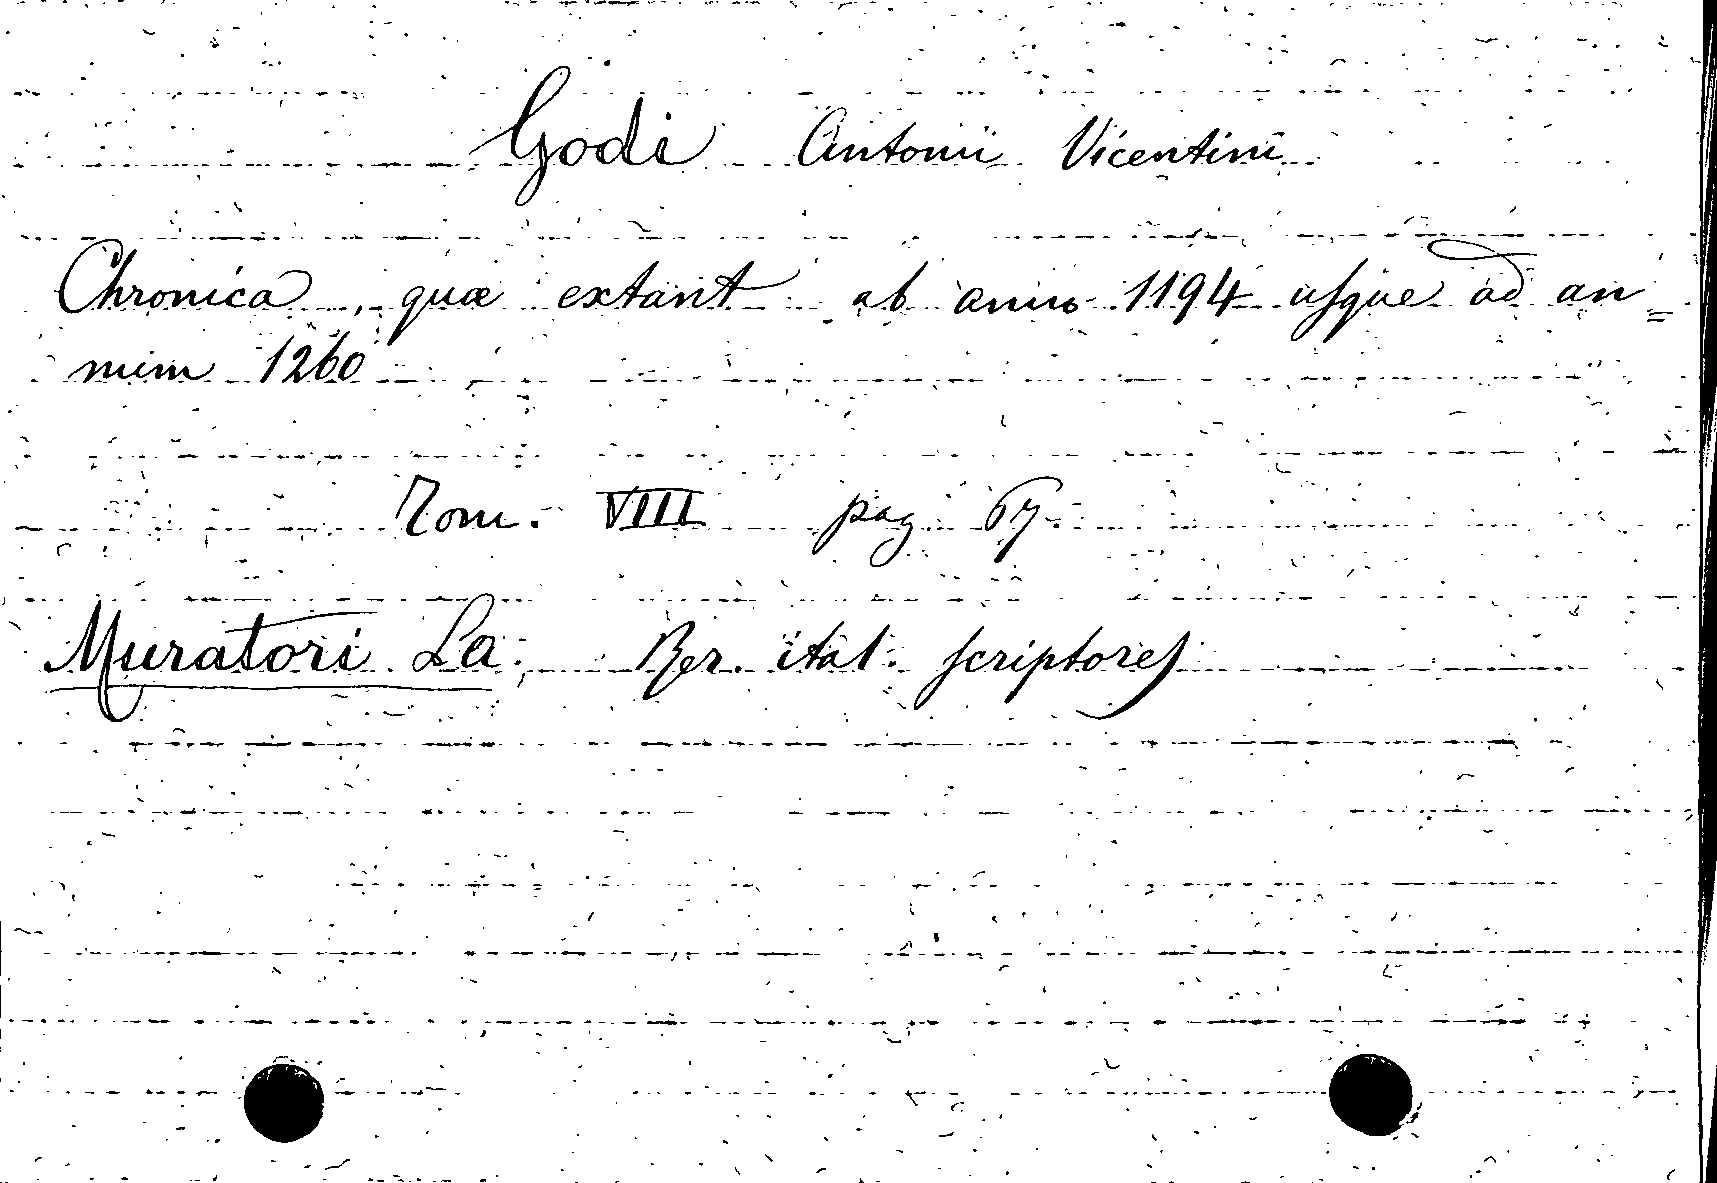 Godi Antonii Vicentini
Chronica, quæ extant ab anno 1194 usque ad an=
num 1260
Tom. VIII pag 67.
Muratori La, Rer. ital. scriptores